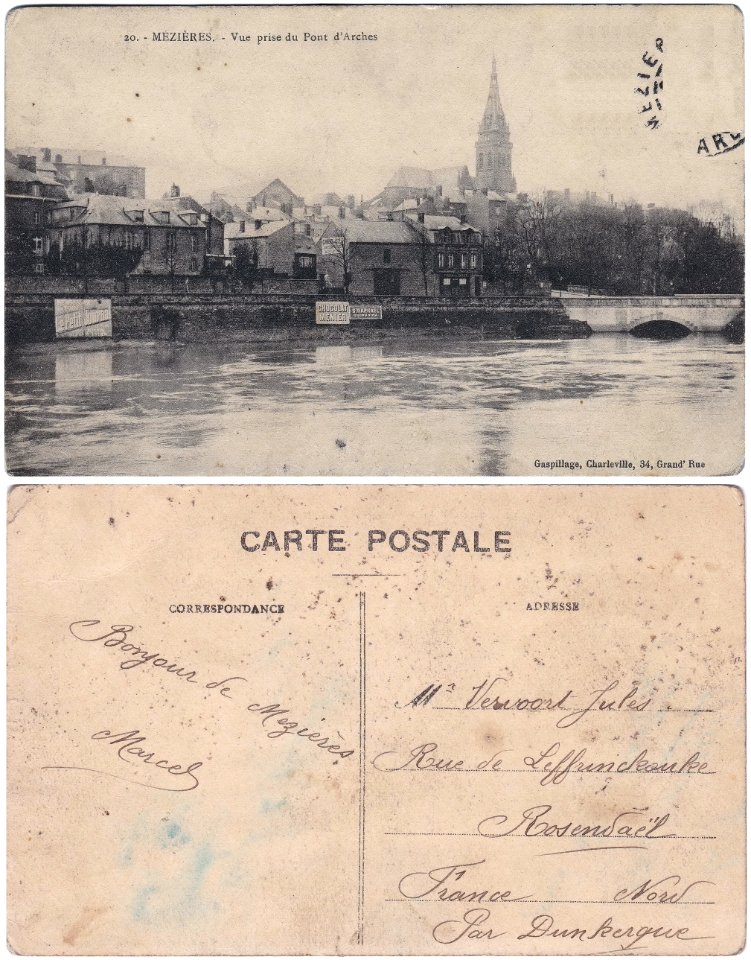 20. - MÉZIÈRES. - Vue prise du Pont d'Arches
MEZIE
ARD
CHOCOLAT
MENIER
Gaspillage, Charleville, 34, Grand' Rue
CARTE POSTALE
CORRESPONDANCE
ADRESSE
Bonjour de Mezières
Marcel
Mr Vervoort Jules
Rue de Leffrinckouke
Rosendaël
France Nord
Par Dunkergue